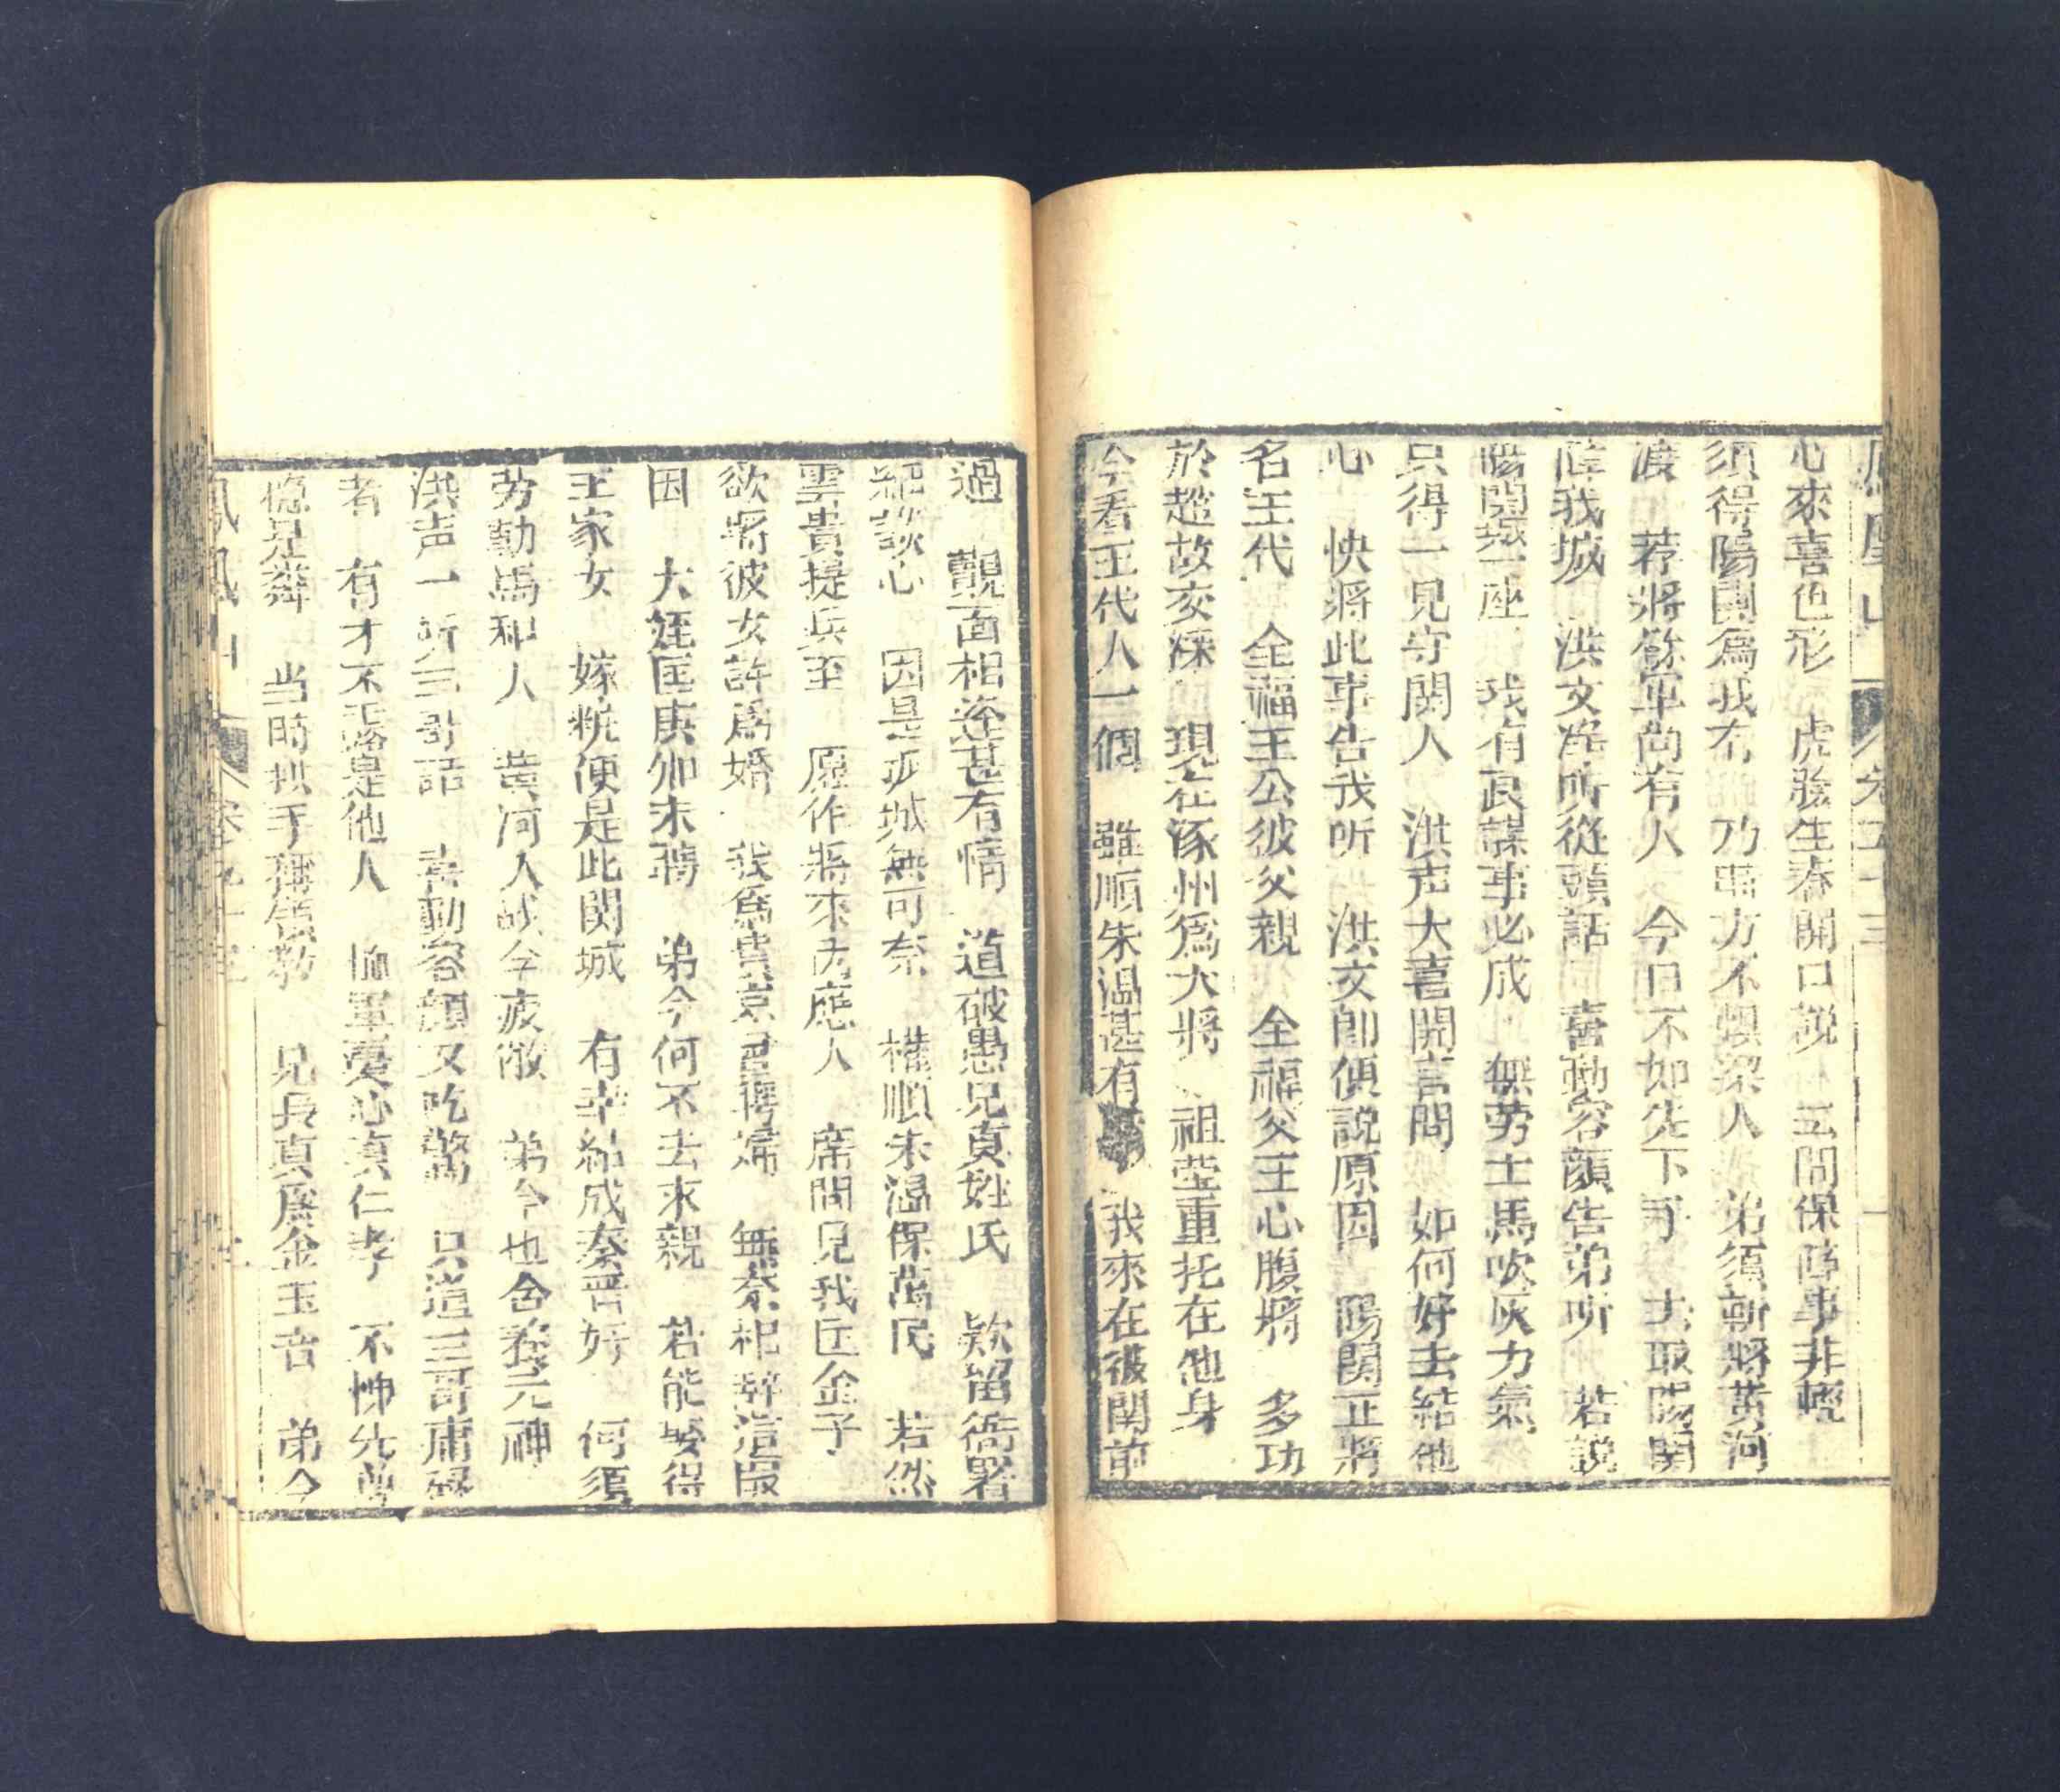 鳳凰山 卷五十三
心來喜色形 虎脸生春開口説 三関保障事非輕
須得陽関為我有 乃車方不惧梁人 弟須斬將黃河
渡 荐將餘軍尚有人 今日不如先下手 去取陽関
障我城 洪文准听從頭話 喜動容顔告弟听 若說
陽関城一座 我有良謀事必成 無劳士馬吹灰力氣
只得一見守関人 洪声大喜開言問 如何好去結他
心 快將此事告我听 洪文卽便説原因 陽関正將
名王代 全福王公彼父親 全福父王心腹將 多功
於趙故交深 現在涿州為大將 祖塋重托在他身
今看王代人一個 雖順朱温甚有 我來在彼関前
過 覿面相逢甚有情 道破愚兄真姓氏 欵留衙署
細談心 因是孤城無可奈 權順朱温保萬民 若然
雲貴提兵至 愿作將來内應人 席間見我匡金子
欲將彼女許爲婚 我爲貴京已得婦 無奈相辭這段
因 大姪匡庚卿未聘 弟今何不去求親 若能娶得
王家女 嫁粧便是此関城 有幸結成秦晋好 何須
劳動馬和人 黃河人战今疲敝 弟今也合養元神
洪声一听三哥話 喜動容顔又吃驚 只道三哥庸碌
者 有才不露是他人 恤軍憂心真仁孝 不怫先尊
稳是莽 当時拱手稱領教 兄長真爲金玉音 弟今
鳳凰山 卷五十三